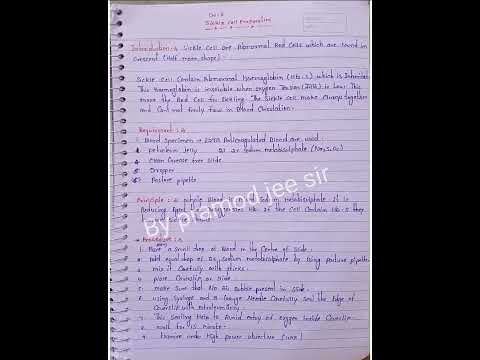 Sickle Cell Preparation
Introduction :- Sickle Cell are Abnormal Red Cells which are found in
Crescent (Half moon shape).
Sickle Cell Contain Abnormal Haemoglobin (Hb-S) which is Inherited
This Haemoglobin is insoluble when oxygen Tension is Low. This
make the Red Cell for Sickling. The Sickle Cell make Clumps together
and Can not freely flow in Blood Circulation.
Requirement :-
1. Blood Specimen :- EDTA Anticoagulated Blood are used.
Petroleum Jelly 2% Sodium metabisulphate (Na2S2O5)
Clean Grease free Slide
Dropper
Pasture pipette
Principle :- whole Blood metabisulphate. It is
Reducing Agent Hb. If the Cell Contain Hb-S they
Procedure :-
1. Place a Small drop of Blood in the Centre of Slide.
Add equal drop of 2% Sodium metabisulphate by Using Pasture pipette
mix it Carefully with sticks.
place Coverslip on Slide
make Sure that No Air bubble present in Slide.
using Syringe and Gauge Needle Carefully Seal the Edge of
Coverslip with Petroleum Jelly.
This Sealing Help to Avoid entry of oxygen inside Coverslip.
wait for 15 minute.
Examine under High power objective (40x)
By pramod jee sir